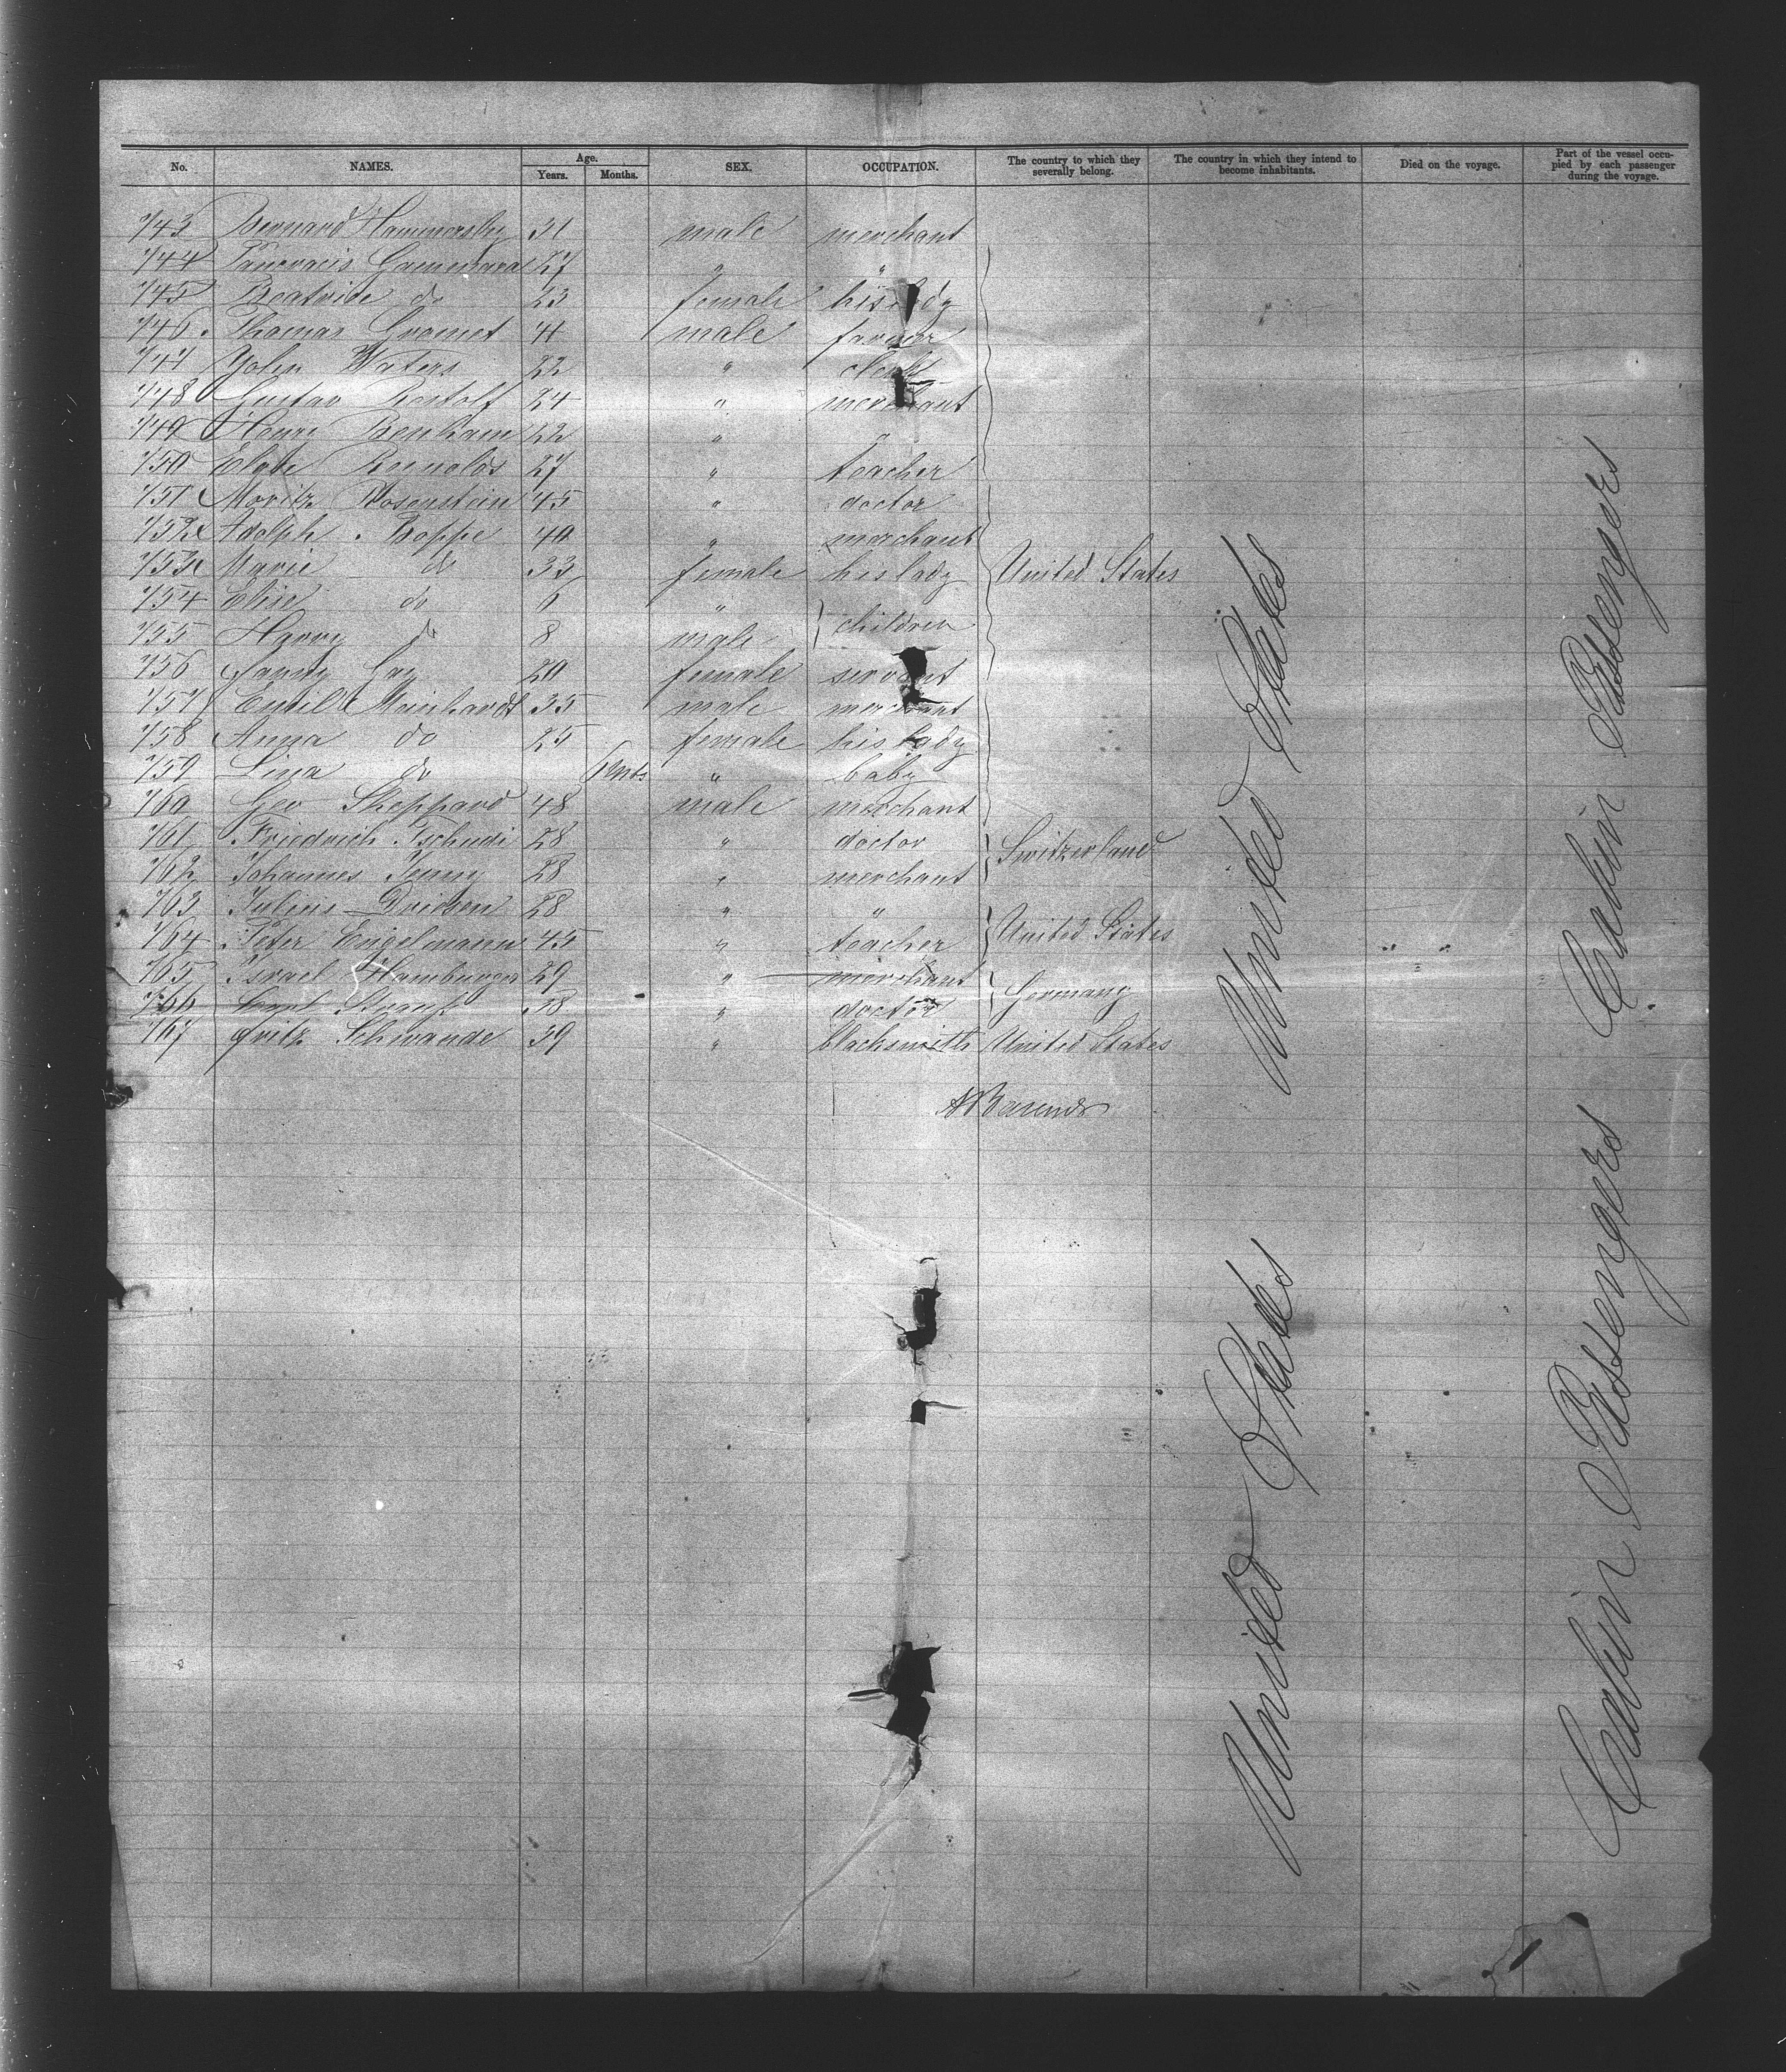 No. NAMES. Age. Years. Months. SEX. OCCUPATION. The country to which they severally belong. The country in which they intend to become inhabitants. Died on the voyage. Part of the vessel occupied by each passenger during the voyage.
743 Bernard 31 male merchant
744 27 " "
745 Beatrice do 23 female his lady
746 Thomas male
747 John Waters 22 " clerk
748 Gustav 24 " merchant
749 Henry Benham 22 "
750 27 " teacher
751 Moritz Rosenstein 45 " doctor
752 Adolph Hoppe 40 " merchant
753 Marie do 33 female his lady United States
754 Elise do 6 " children
755 Harry do 8 male
756 20 female servant
757 Emil Mainhardt 35 male merchant
758 Anna do 25 female his lady
759 Lina do 6 mts " baby
760 Geo Sheppard 48 male merchant
761 Friedrich Tschudi 28 " doctor Switzerland
762 Johannes Jenny 28 " merchant
763 Julius 28 " "
764 Peter Engelmann 45 " teacher United States
765 Israel Hamburger 29 " merchant
766 28 " doctor Germany
767 Fritz Schwande 39 " blacksmith United States
United States
United States
Cabin Passengers
Cabin Passengers